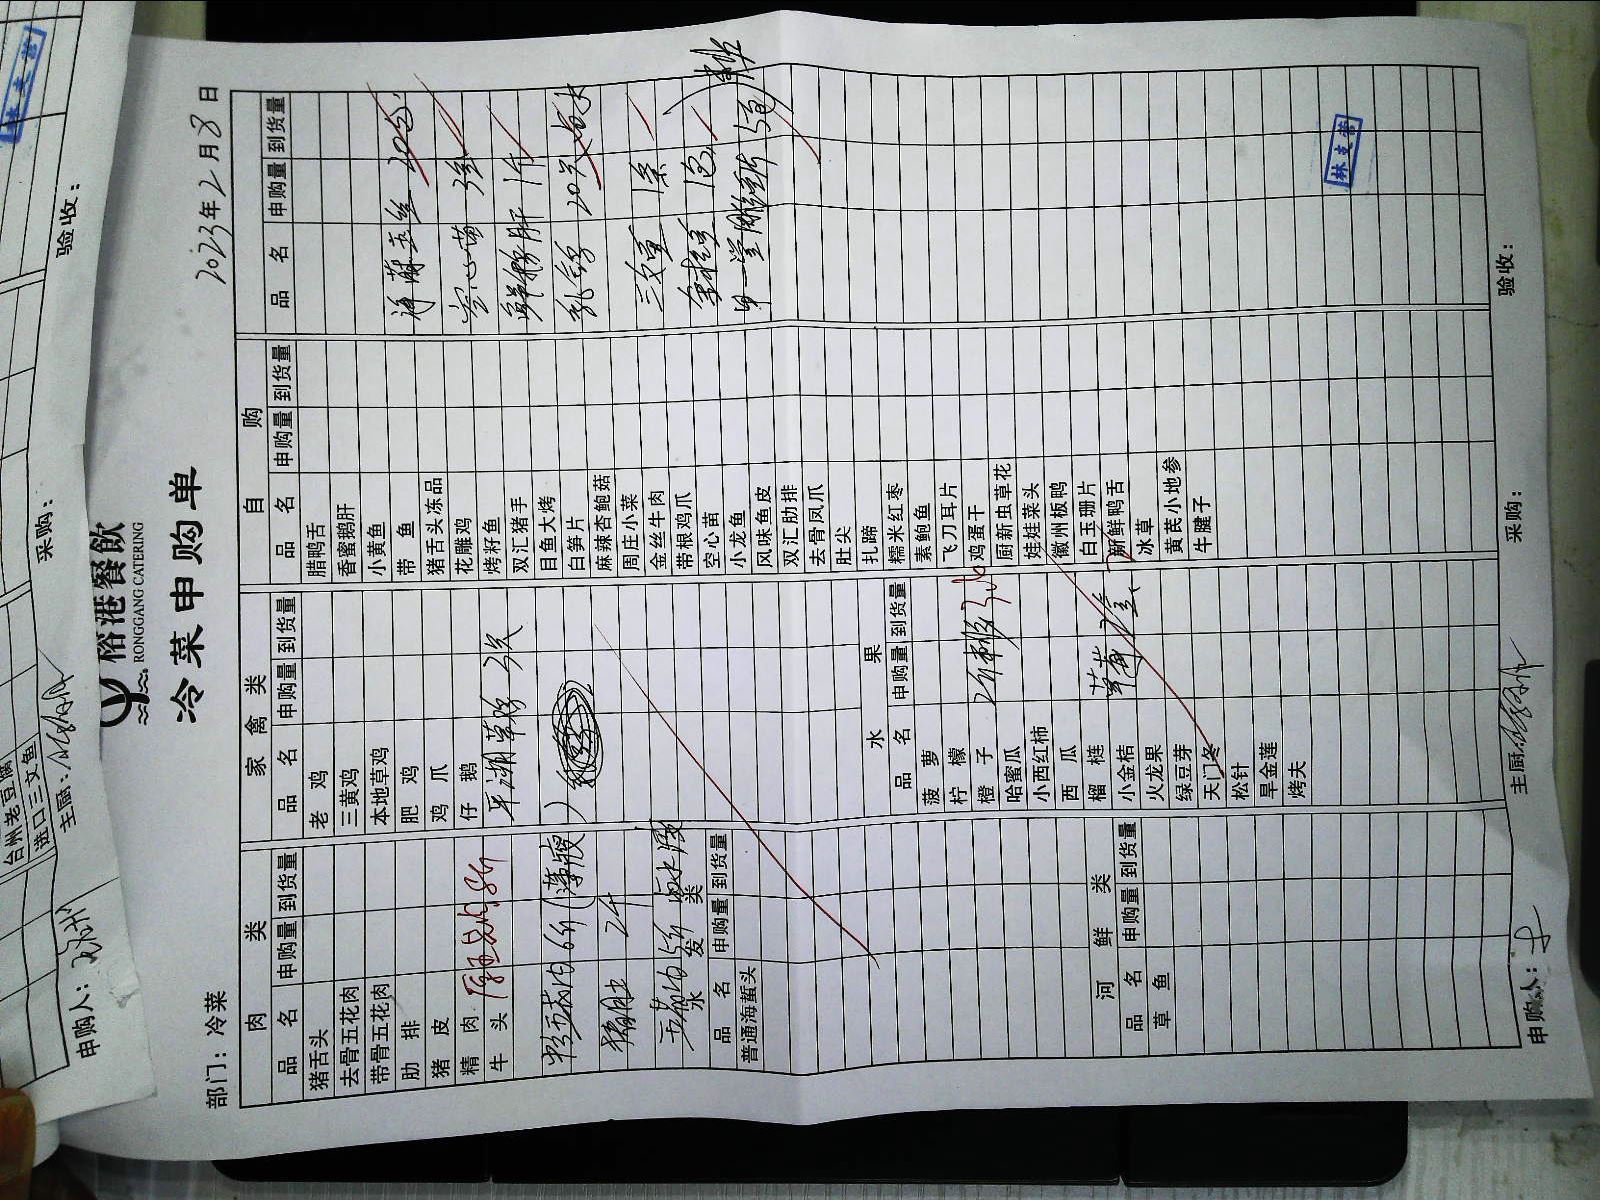 裕港餐飲
RONGGANG CATERING
冷菜申购单
部门：冷菜
2023年2月8日
肉类
品名 申购量 到货量
猪舌头
去骨五花肉
带骨五花肉
肋排
猪皮
精肉
牛头
6斤
猪肚 2个
5斤
水发类
品名 申购量 到货量
普通海蜇头
河鲜类
品名 申购量 到货量
草鱼
家禽类
品名 申购量 到货量
老鸡
三黄鸡
本地草鸡
肥鸡
鸡爪
仔鹅
平湖草鸡 2只
水果
品名 申购量 到货量
菠萝
柠檬
橙子
哈蜜瓜
小西红柿
西瓜
榴梿
小金桔
火龙果
绿豆芽
天门冬
松针
旱金莲
烤夫
草莓 2盒
自购
品名 申购量 到货量
腊鸭舌
香蜜鹅肝
小黄鱼
带鱼
猪舌头冻品
花雕鸡
烤籽鱼
双汇猪手
目鱼大烤
白笋片
麻辣杏鲍菇
周庄小菜
金丝牛肉
带根鸡爪
空心苗
小龙鱼
风味鱼皮
双汇肋排
去骨凤爪
肚尖
扎蹄
糯米红枣
素鲍鱼
飞刀耳片
鸡蛋干
厨新虫草花
娃娃菜头
徽州板鸭
白玉珊片
新鲜鸭舌
冰草
黄芪小地参
牛腱子
品名 申购量 到货量
20包
空心苗
鲜鹅肝 1斤
乳鸽 20只
三文鱼 1条
1包
5包
林支营
申购人：
主厨：
采购：
验收：
台州老豆腐
进口三文鱼
申购人：
主厨：
采购：
验收：
林支营